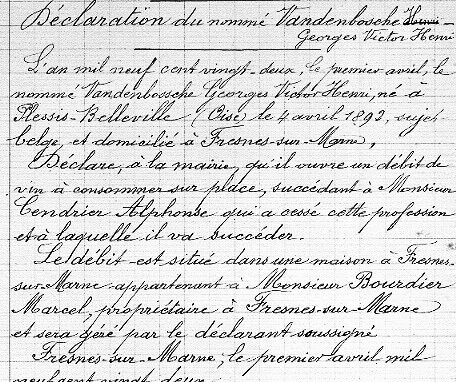 Déclaration du nommé Vandenbossche Henri
Georges Victor Henri
L'an mil neuf cent vingt-deux, le premier avril, le
nommé Vandenbossche Georges Victor Henri, né à
Plessis-Belleville (Oise) le 4 avril 1892, sujet
belge, et domicilié à Fresnes-sur-Marne,
Déclare, à la mairie, qu'il ouvre un débit de
vin à consommer sur place, succédant à Monsieur
Cendrier Alphonse qui a cessé cette profession
et à laquelle il va succéder.
Le débit est situé dans une maison à Fresnes-
sur-Marne appartenant à Monsieur Bourdier
Marcel, propriétaire à Fresnes-sur-Marne
et sera géré par le déclarant soussigné
Fresnes-sur-Marne, le premier avril mil
neuf cent vingt deux.